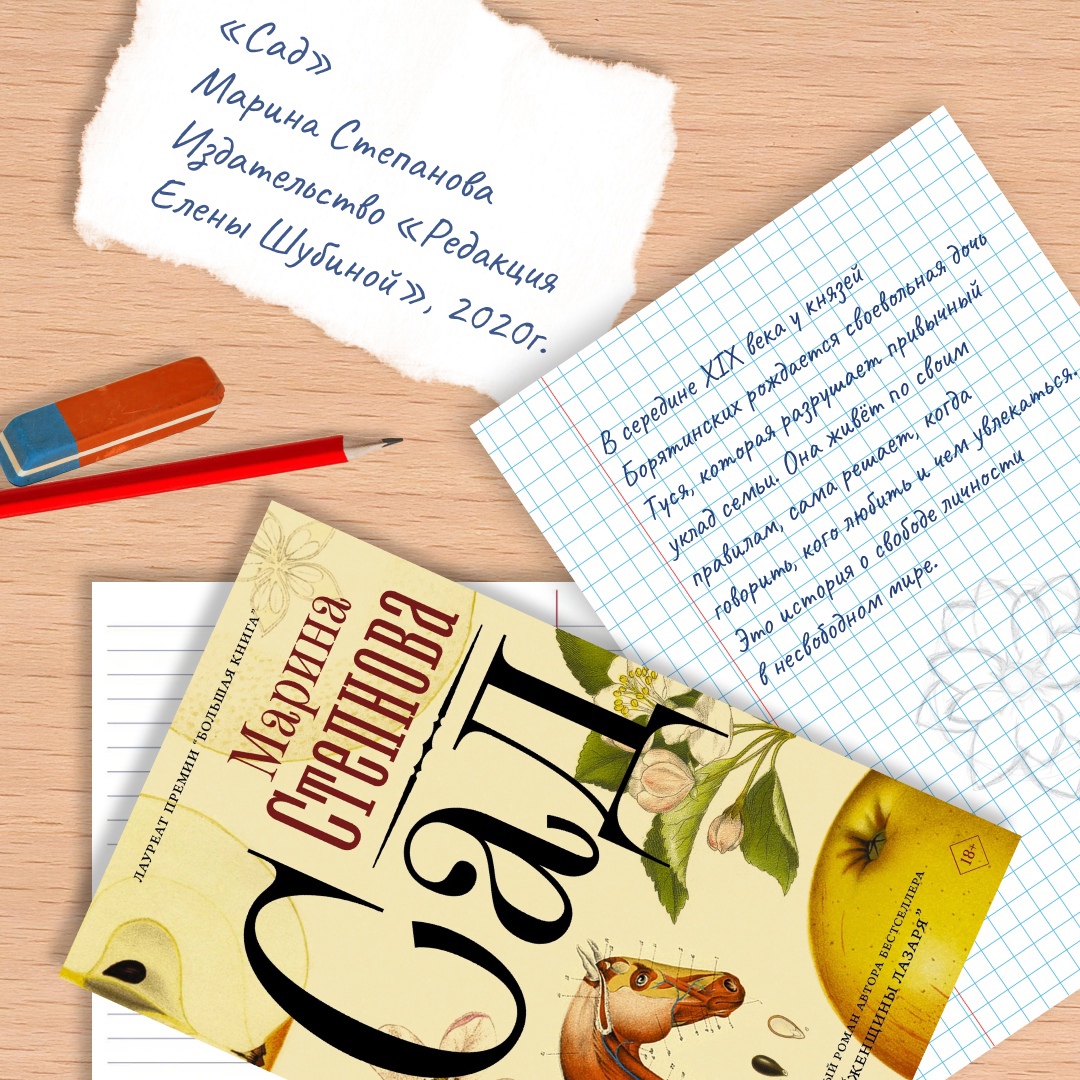 «Сад»
Марина Степанова
Издательство «Редакция
Елены Шубиной», 2020г.
В середине XIX века у князей
Борятинских рождается своевольная дочь
Туся, которая разрушает привычный
уклад семьи. Она живёт по своим
правилам, сама решает, когда
говорить, кого любить и чем увлекаться.
Это история о свободе личности
в несвободном мире.
ЛАУРЕАТ ПРЕМИИ "БОЛЬШАЯ КНИГА"
Марина
Степнова
Сад
18+
РОМАН АВТОРА БЕСТСЕЛЛЕРА
ЖЕНЩИНЫ ЛАЗАРЯ"